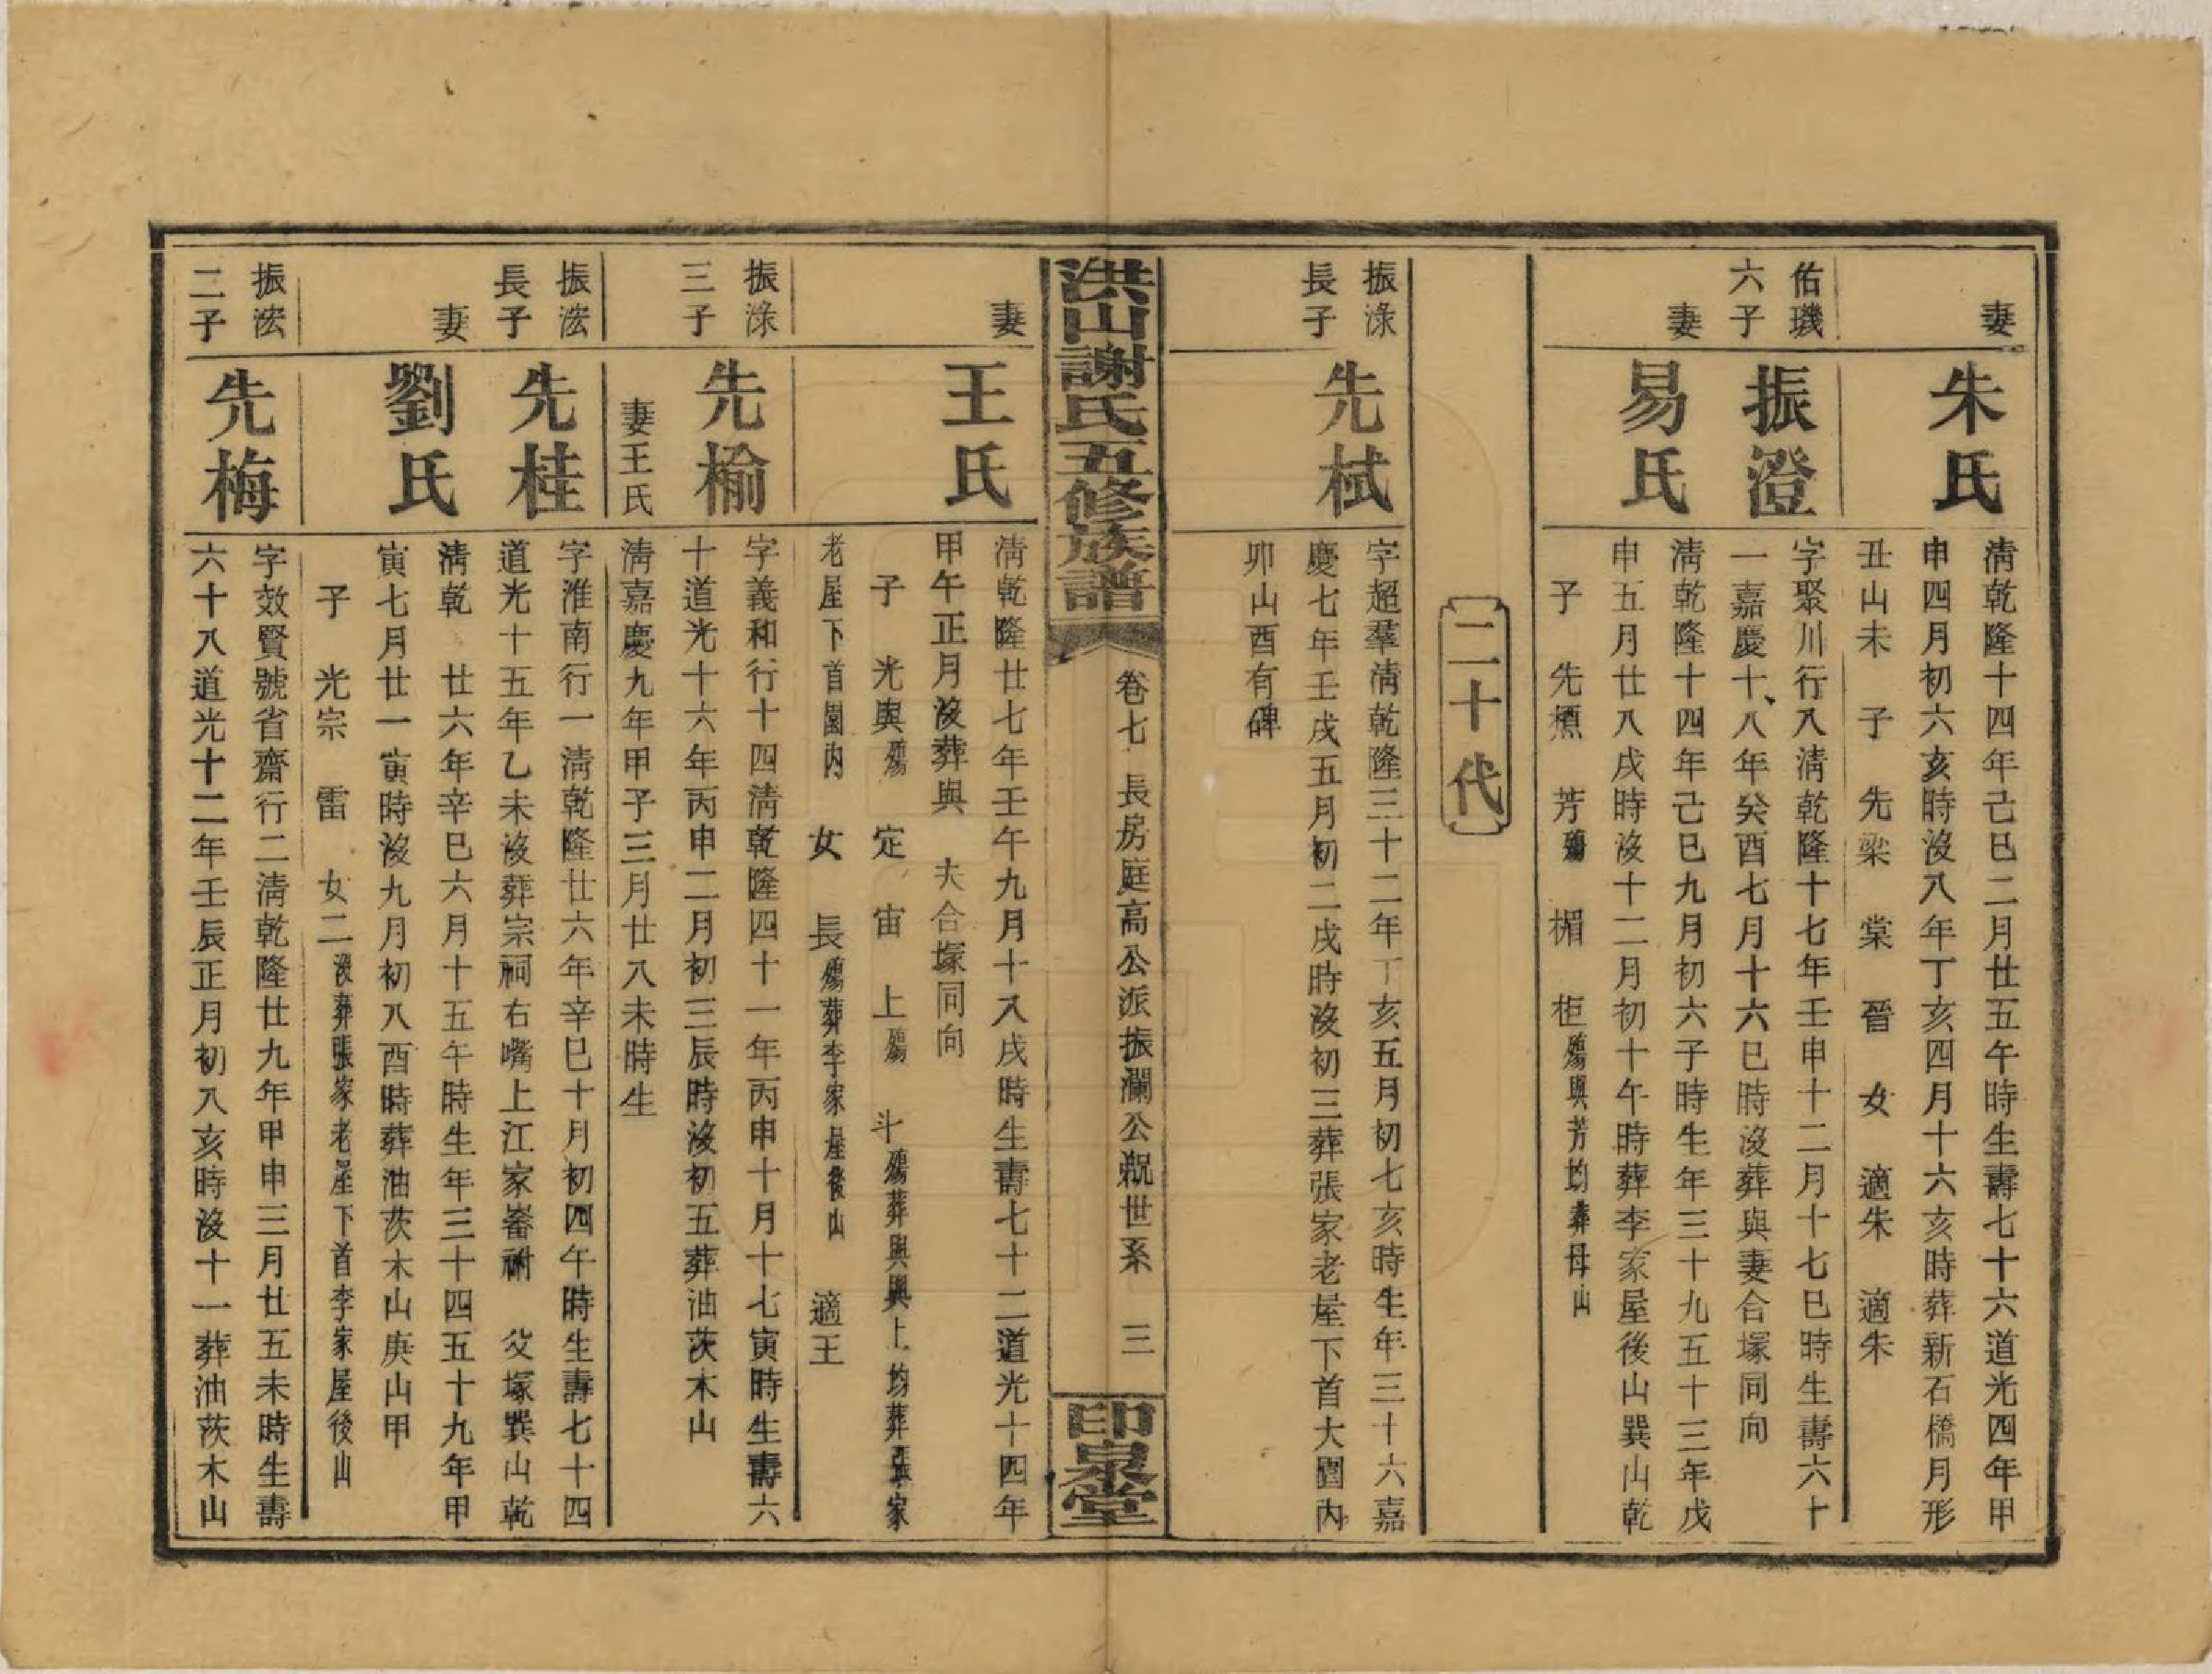 妻
朱氏
清乾隆十四年己巳二月廿五午時生壽七十六道光四年甲
申四月初六亥時沒八年丁亥四月十六亥時葬新石橋月形
丑山未 子 先梁 棠 晉 女 適朱 適朱
佑璣
六子
振澄
字聚川行八清乾隆十七年壬申十二月十七巳時生壽六十
一嘉慶十八年癸酉七月十六巳時沒葬與妻合塚同向
妻
易氏
清乾隆十四年己巳九月初六子時生年三十九五十三年戊
申五月廿八戌時沒十二月初十午時葬李家屋後山巽山乾
子 先槱 芳殤 楣 柜殤與芳均葬母山
二十代
振淥
長子
先栻
字超羣清乾隆三十二年丁亥五月初七亥時生年三十六嘉
慶七年壬戌五月初二戌時沒初三葬張家老屋下首大園內
卯山酉有碑
洪山謝氏五修族譜
卷七 長房庭高公派振瀾公親世系 三
印泉堂
妻
王氏
清乾隆廿七年壬午九月十八戌時生壽七十二道光十四年
甲午正月沒葬與 夫合塚同向
子 光輿殤 定 宙 上殤 斗殤葬輿與上均葬張家
老屋下首園內 女 長殤葬李家屋後山 適王
振淥
三子
先榆
字義和行十四清乾隆四十一年丙申十月十七寅時生壽六
十道光十六年丙申二月初三辰時沒初五葬油茨木山
妻王氏
清嘉慶九年甲子三月廿八未時生
振浤
長子
先桂
字淮南行一清乾隆廿六年辛巳十月初四午時生壽七十四
道光十五年乙未沒葬宗祠右嘴上江家崙祔 父塚巽山乾
妻
劉氏
清乾 廿六年辛巳六月十五午時生年三十四五十九年甲
寅七月廿一寅時沒九月初八酉時葬油茨木山庚山甲
子 光宗 雷 女二沒葬張家老屋下首李家屋後山
振浤
二子
先梅
字效賢號省齋行二清乾隆廿九年甲申三月廿五未時生壽
六十八道光十二年壬辰正月初八亥時沒十一葬油茨木山